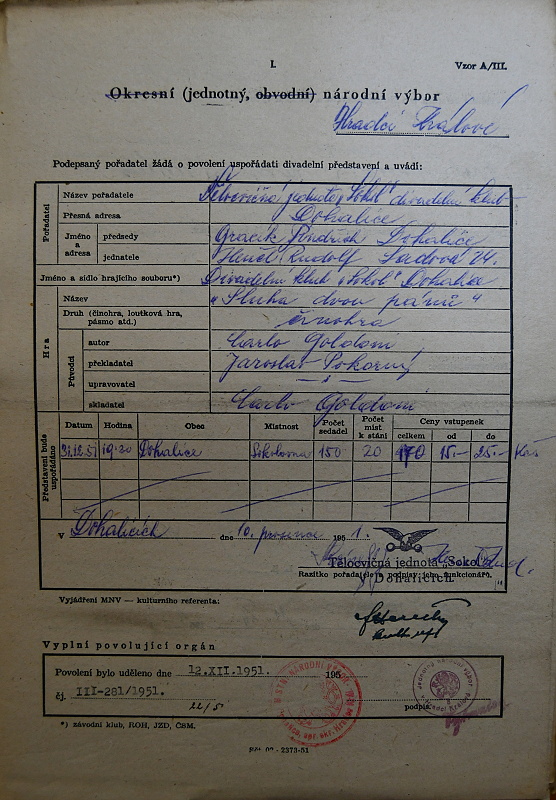 I.
Vzor A/III.
Okresní (jednotný, obvodní) národní výbor
Hradci Králové
Podepsaný pořadatel žádá o povolení uspořádati divadelní představení a uvádí:
Pořadatel
Název pořadatele Tělocvičná jednota „Sokol" divadelní klub
Přesná adresa Dohalice
Jméno a adresa
předsedy Jindřich Dohalice
jednatele Rudolf Sadová 24.
Jméno a sídlo hrajícího souboru*) Divadelní klub „Sokol" Dohalice
Hra
Název „Sluha dvou pánů"
Druh (činohra, loutková hra, pásmo atd.) činohra
Původci
autor Carlo Goldoni
překladatel Jaroslav Pokorný
upravovatel
skladatel Carlo Goldoni
Představení bude uspořádáno
Datum Hodina Obec Místnost Počet sedadel Počet míst k stání Ceny vstupenek
celkem od do
19.30 Dohalice Sokolovna 150 20 170 15.- 25.- Kčs
V Dohalicích dne 10. prosince 1951.
Tělocvičná jednota „Sokol"
Razítko pořadatele a podpisy jeho funkcionářů.
Dohalicích
Vyjádření MNV — kulturního referenta:
Vyplní povolující orgán
Povolení bylo uděleno dne 12.XII.1951. 195
čj. III-281/1951.
podpis
*) závodní klub, ROH, JZD, ČSM.
2373-51